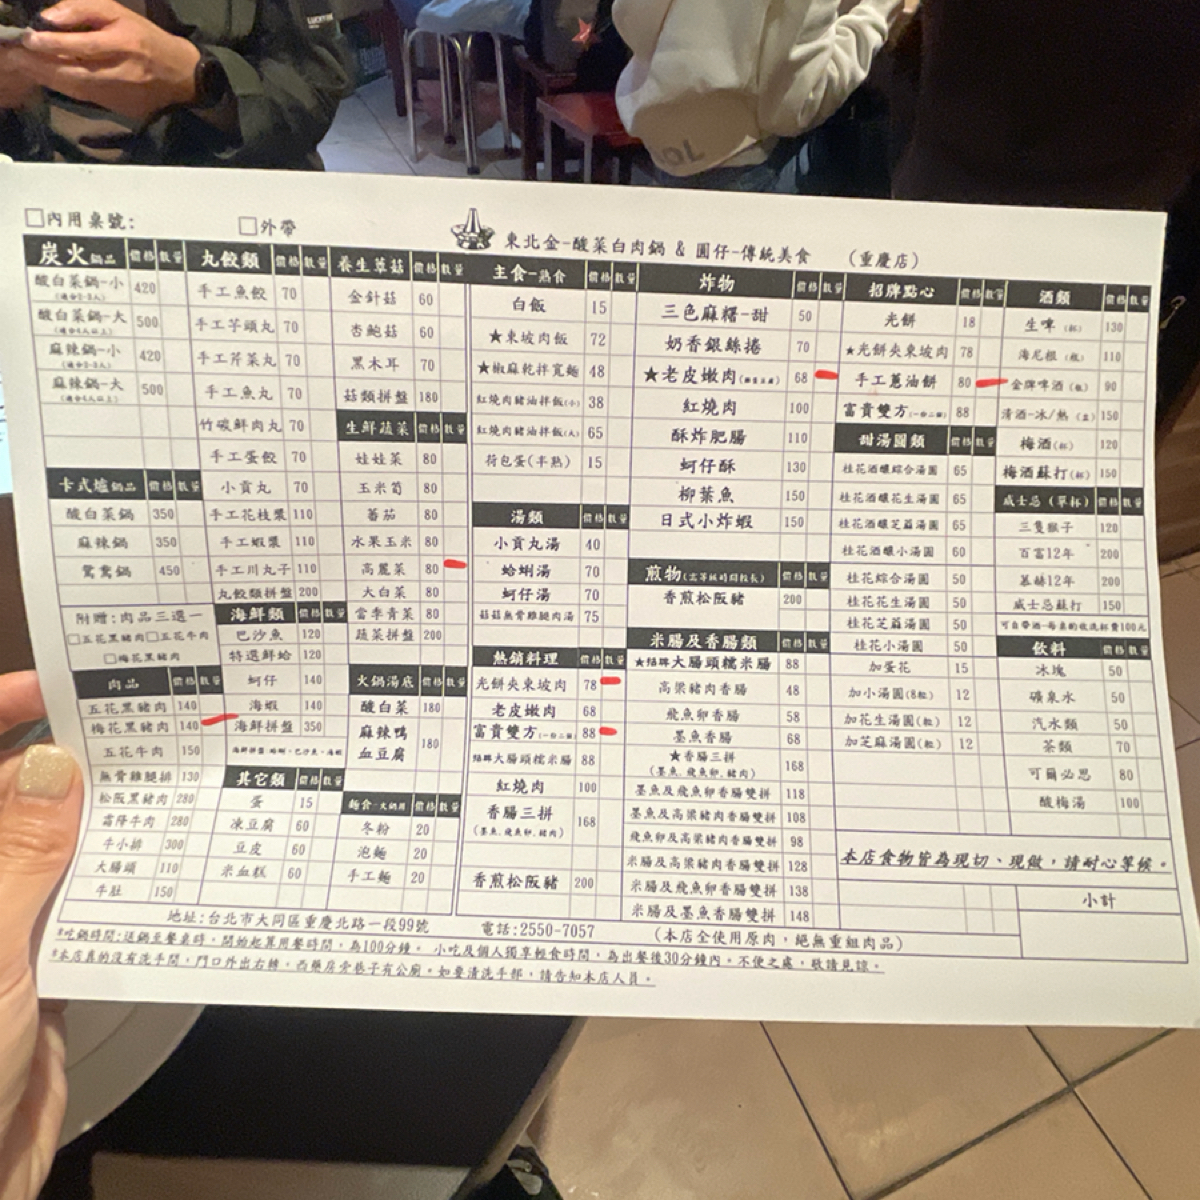 □內用桌號:
□外帶
東北金-酸菜白肉鍋 & 圓仔-傳統美食 (重慶店)
炭火鍋品 價格 數量
酸白菜鍋-小 420
(適合2-3人)
酸白菜鍋-大 500
(適合4人以上)
麻辣鍋-小 420
(適合2-3人)
麻辣鍋-大 500
(適合4人以上)
卡式爐鍋品 價格 數量
酸白菜鍋 350
麻辣鍋 350
鴛鴦鍋 450
附贈:肉品三選一
□五花黑豬肉□五花牛肉
□梅花黑豬肉
肉品 價格 數量
五花黑豬肉 140
梅花黑豬肉 140
五花牛肉 150
無骨雞腿排 130
松阪黑豬肉 280
霜降牛肉 280
牛小排 300
大腸頭 110
牛肚 150
丸餃類 價格 數量
手工魚餃 70
手工芋頭丸 70
手工芹菜丸 70
手工魚丸 70
竹碳鮮肉丸 70
手工蛋餃 70
小貢丸 70
手工花枝漿 110
手工蝦漿 110
手工川丸子 110
丸餃類拼盤 200
海鮮類 價格 數量
巴沙魚 120
特選鮮蛤 120
蚵仔 140
海蝦 140
海鮮拼盤 350
海鮮拼盤:蛤蜊、巴沙魚、海蝦
其它類 價格 數量
蛋 15
凍豆腐 60
豆皮 60
米血糕 60
養生草菇 價格 數量
金針菇 60
杏鮑菇 60
黑木耳 70
菇類拼盤 180
生鮮蔬菜 價格 數量
娃娃菜 80
玉米筍 80
蕃茄 80
水果玉米 80
高麗菜 80
大白菜 80
當季青菜 80
蔬菜拼盤 200
火鍋湯底 價格 數量
酸白菜 180
麻辣鴨血豆腐 180
麵食-火鍋用 價格 數量
冬粉 20
泡麵 20
手工麵 20
主食-熟食 價格 數量
白飯 15
★東坡肉飯 72
★椒麻乾拌寬麵 48
紅燒肉豬油拌飯(小) 38
紅燒肉豬油拌飯(大) 65
荷包蛋(半熟) 15
湯類 價格 數量
小貢丸湯 40
蛤蜊湯 70
蚵仔湯 70
菇菇無骨雞腿肉湯 75
熱銷料理 價格 數量
光餅夾東坡肉 78
老皮嫩肉 68
富貴雙方(一份二個) 88
招牌大腸頭糯米腸 88
紅燒肉 100
香腸三拼 168
(墨魚.飛魚卵.豬肉)
香煎松阪豬 200
炸物 價格 數量
三色麻糬-甜 50
奶香銀絲捲 70
★老皮嫩肉(雞蛋豆腐) 68
紅燒肉 100
酥炸肥腸 110
蚵仔酥 130
柳葉魚 150
日式小炸蝦 150
煎物(需等候時間較長) 價格 數量
香煎松阪豬 200
米腸及香腸類 價格 數量
★招牌大腸頭糯米腸 88
高梁豬肉香腸 48
飛魚卵香腸 58
墨魚香腸 68
★香腸三拼 168
(墨魚.飛魚卵.豬肉)
墨魚及飛魚卵香腸雙拼 118
墨魚及高梁豬肉香腸雙拼 108
飛魚卵及高梁豬肉香腸雙拼 98
米腸及高梁豬肉香腸雙拼 128
米腸及飛魚卵香腸雙拼 138
米腸及墨魚香腸雙拼 148
招牌點心 價格 數量
光餅 18
★光餅夾東坡肉 78
手工蔥油餅 80
富貴雙方(一份二個) 88
甜湯圓類 價格 數量
桂花酒釀綜合湯圓 65
桂花酒釀花生湯圓 65
桂花酒釀芝麻湯圓 65
桂花酒釀小湯圓 60
桂花綜合湯圓 50
桂花花生湯圓 50
桂花芝麻湯圓 50
桂花小湯圓 50
加蛋花 15
加小湯圓(8粒) 12
加花生湯圓(粒) 12
加芝麻湯圓(粒) 12
酒類 價格 數量
生啤(杯) 130
海尼根(瓶) 110
金牌啤酒(瓶) 90
清酒-冰/熱(壺) 150
梅酒(杯) 120
梅酒蘇打(杯) 150
威士忌(單杯) 價格 數量
三隻猴子 120
百富12年 200
慕赫12年 200
威士忌蘇打 150
可自帶酒-每桌酌收洗杯費100元
飲料 價格 數量
冰塊 50
礦泉水 50
汽水類 50
茶類 70
可爾必思 80
酸梅湯 100
本店食物皆為現切、現做,請耐心等候。
小計
地址:台北市大同區重慶北路一段99號 電話:2550-7057 (本店全使用原肉,絕無重組肉品)
*吃鍋時間:送鍋至餐桌時,開始起算用餐時間,為100分鐘。 小吃及個人獨享輕食時間,為出餐後30分鐘內。不便之處,敬請見諒。
*本店真的沒有洗手間,門口外出右轉。西藥房旁巷子有公廁。如要清洗手部,請告知本店人員。